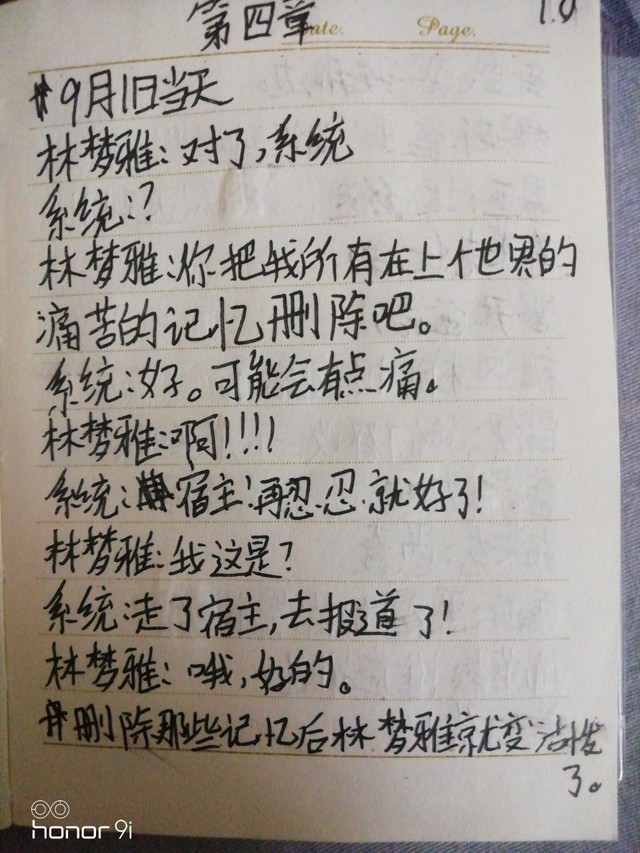 第四章
Date. Page.
#9月1日当天
林梦雅:对了,系统
系统:?
林梦雅:你把我所有在上个世界的
痛苦的记忆删除吧。
系统:好。可能会有点痛。
林梦雅:啊!!!!
系统:宿主!再忍.忍.就好了!
林梦雅:我这是?
系统:走了宿主,去报道了!
林梦雅:哦,好的。
#删除那些记忆后林梦雅就变活拨
了。
honor 9i